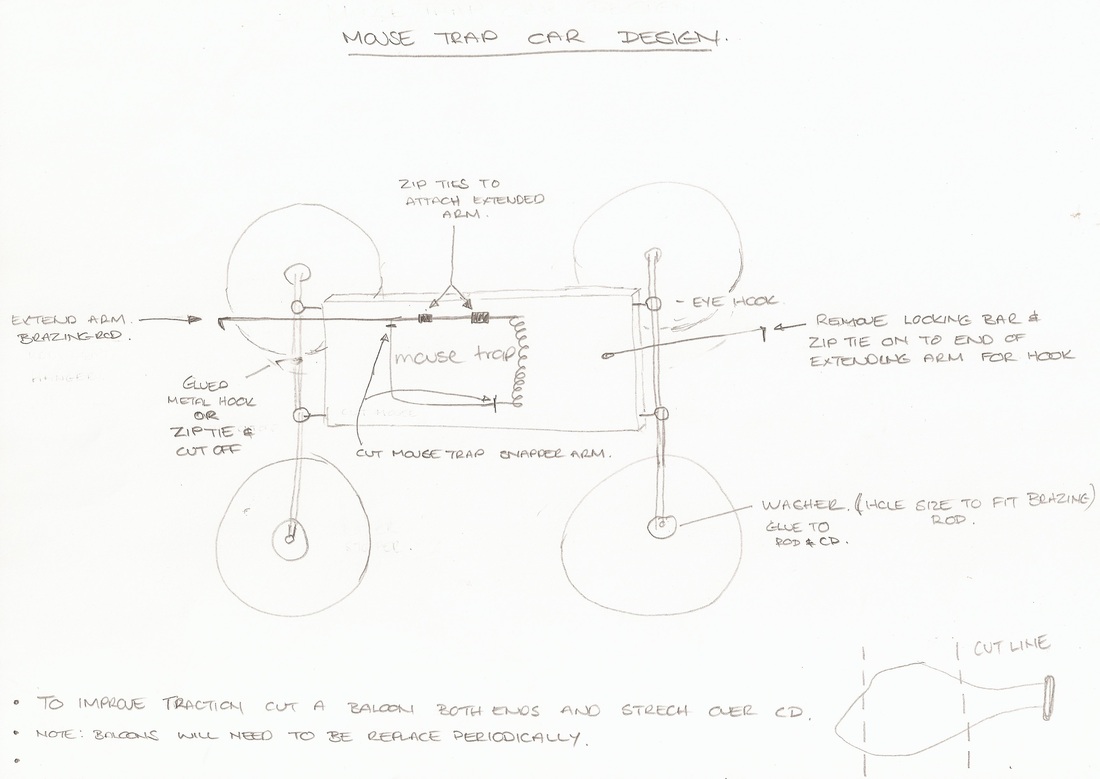 MOUSE TRAP CAR DESIGN.
ZIP TIES TO
ATTACH EXTENDED
ARM.
EXTEND ARM.
BRAZING ROD.
- EYE HOOK.
REMOVE LOCKING BAR &
ZIP TIE ON TO END OF
EXTENDING ARM FOR HOOK
mouse trap
GLUED
METAL HOOK
OR
ZIP TIE &
CUT OFF
CUT MOUSE TRAP SNAPPER ARM.
WASHER. (HOLE SIZE TO FIT BRAZING)
ROD.
GLUE TO
ROD & CD.
CUT LINE
• TO IMPROVE TRACTION CUT A BALOON BOTH ENDS AND STRECH OVER CD.
• NOTE: BALOONS WILL NEED TO BE REPLACE PERIODICALLY.
•